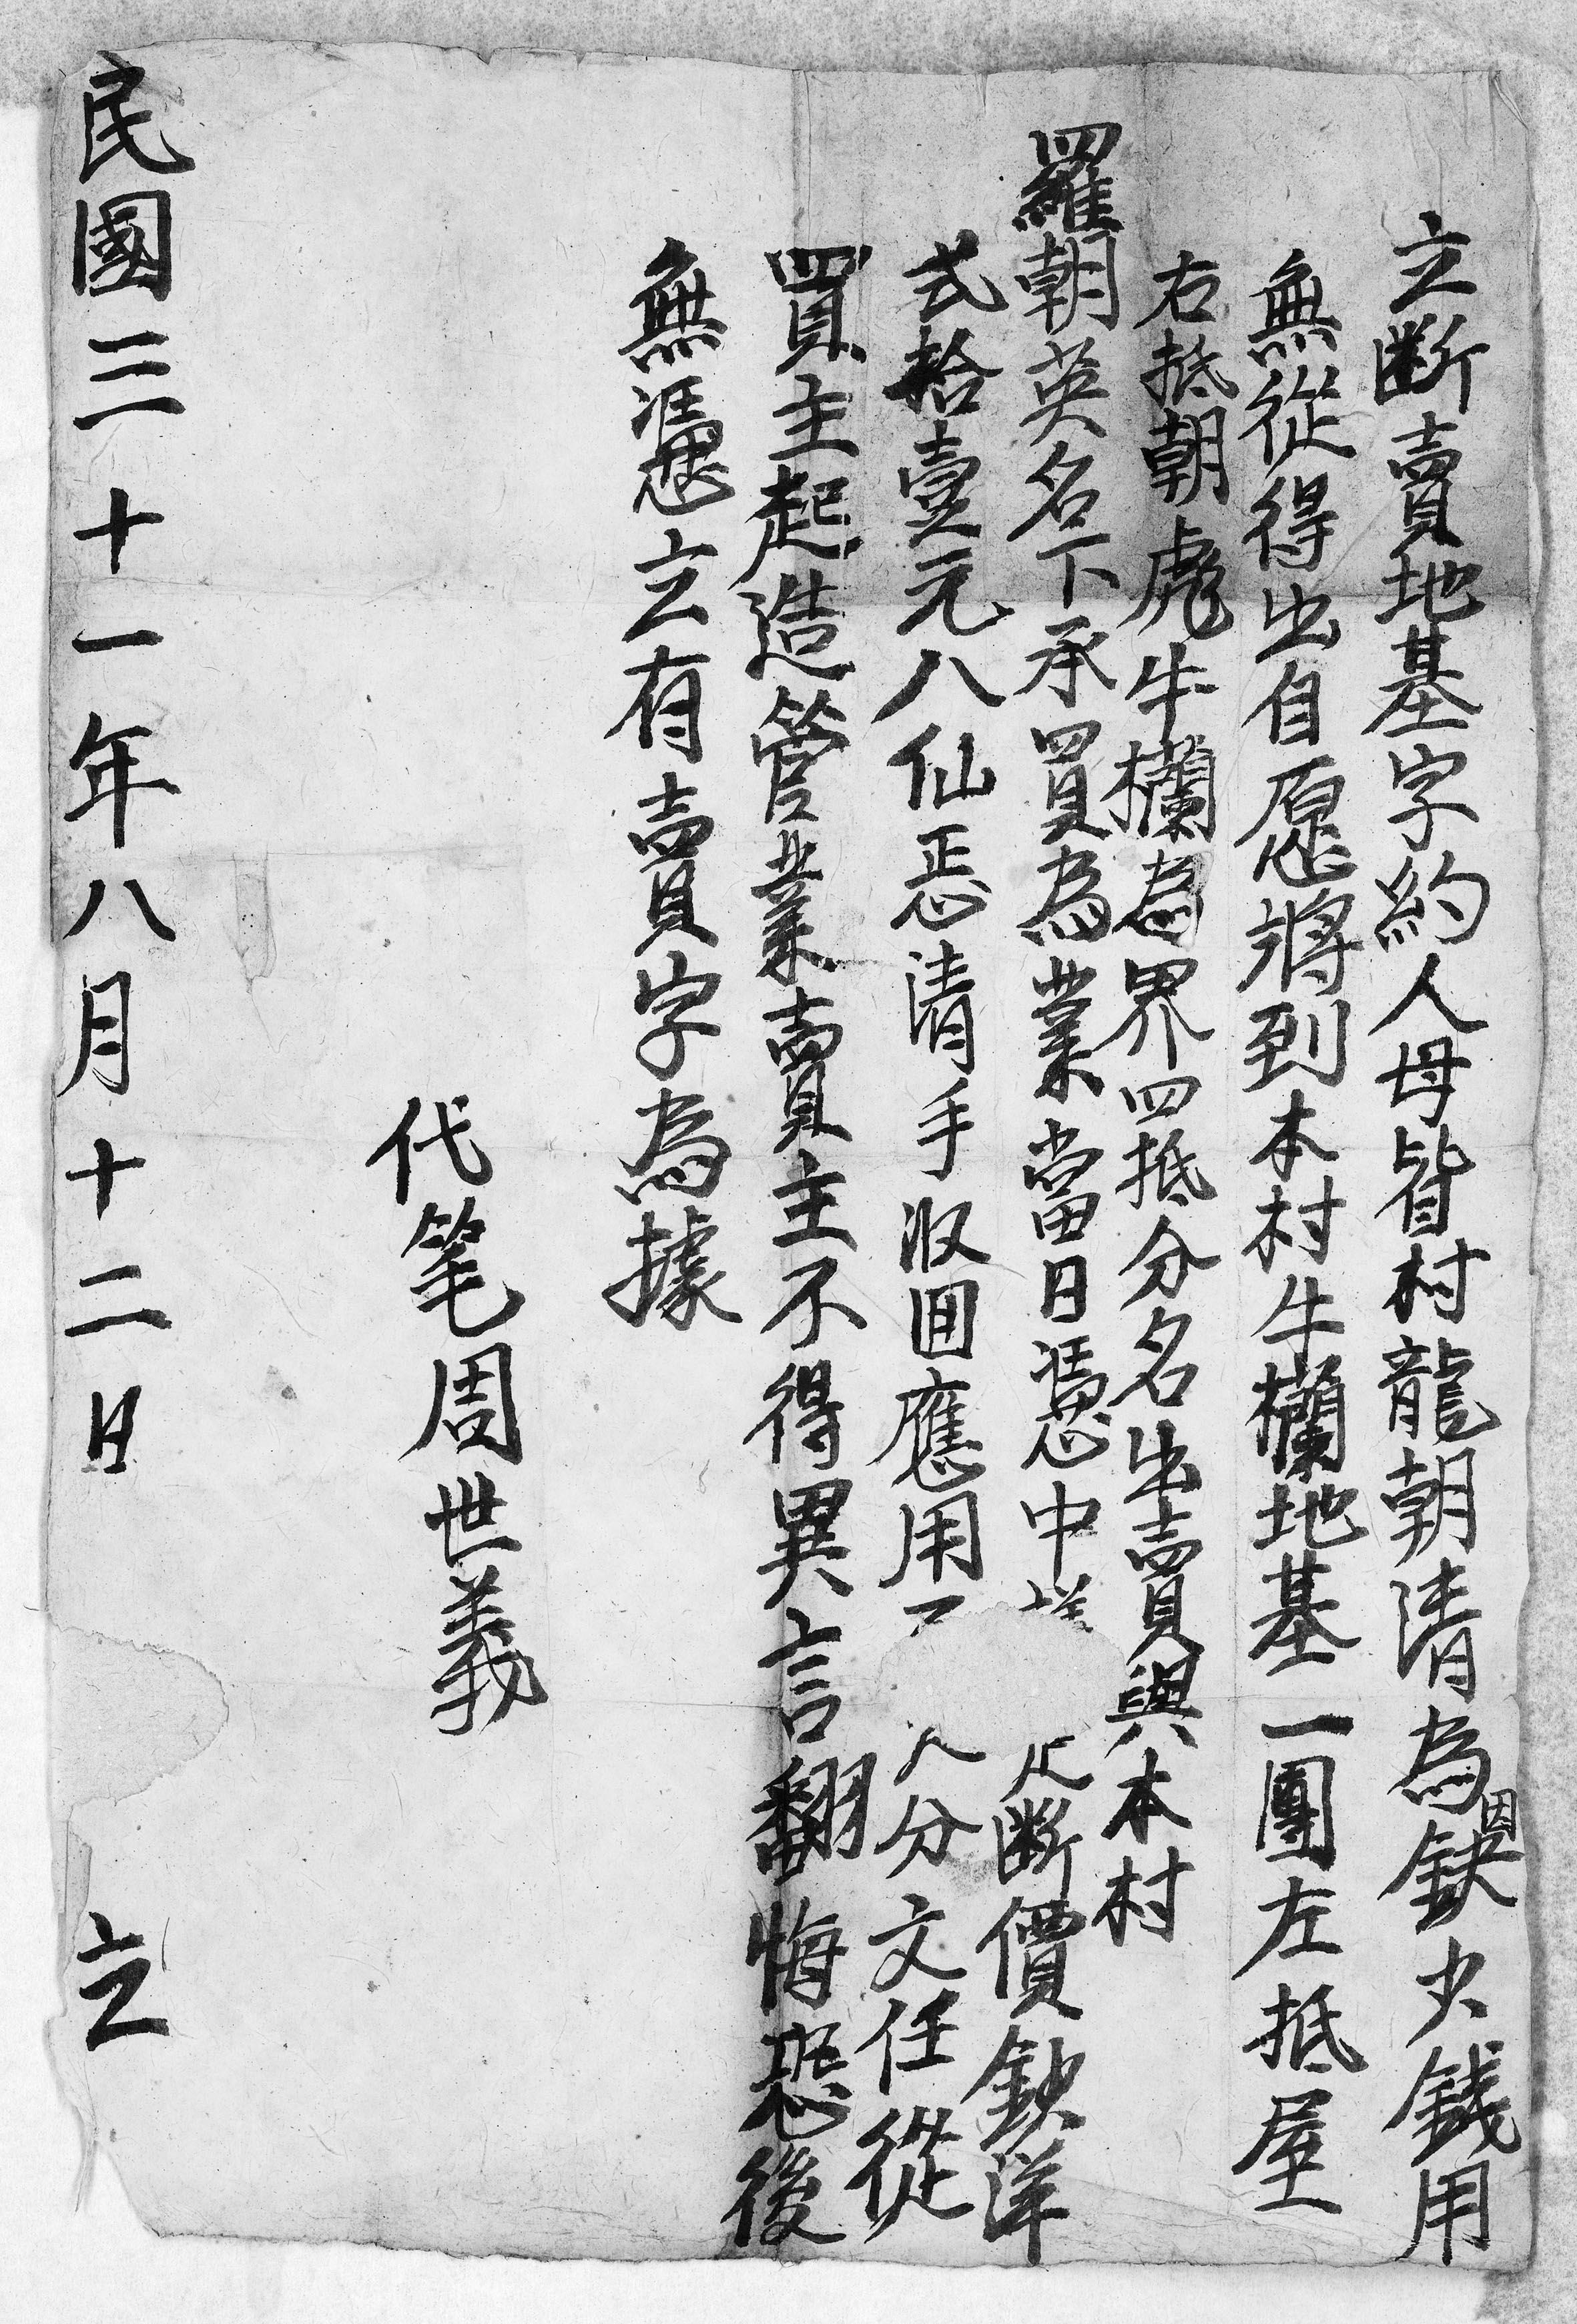 立断賣地基字約人母背村龍朝清為因缺少錢用
無從得出自愿將到本村牛欄地基一團左抵屋
右抵朝彪牛欄為界四抵分名出賣與本村
羅朝英名下承買為業當日憑中 断價鈌洋
式拾壹元八仙恧清手收囬應用 分文任從
買主起造管業賣主不得異言翻悔恐後
無憑立有賣字為據
代筆周世義
民國三十一年八月十二日 立